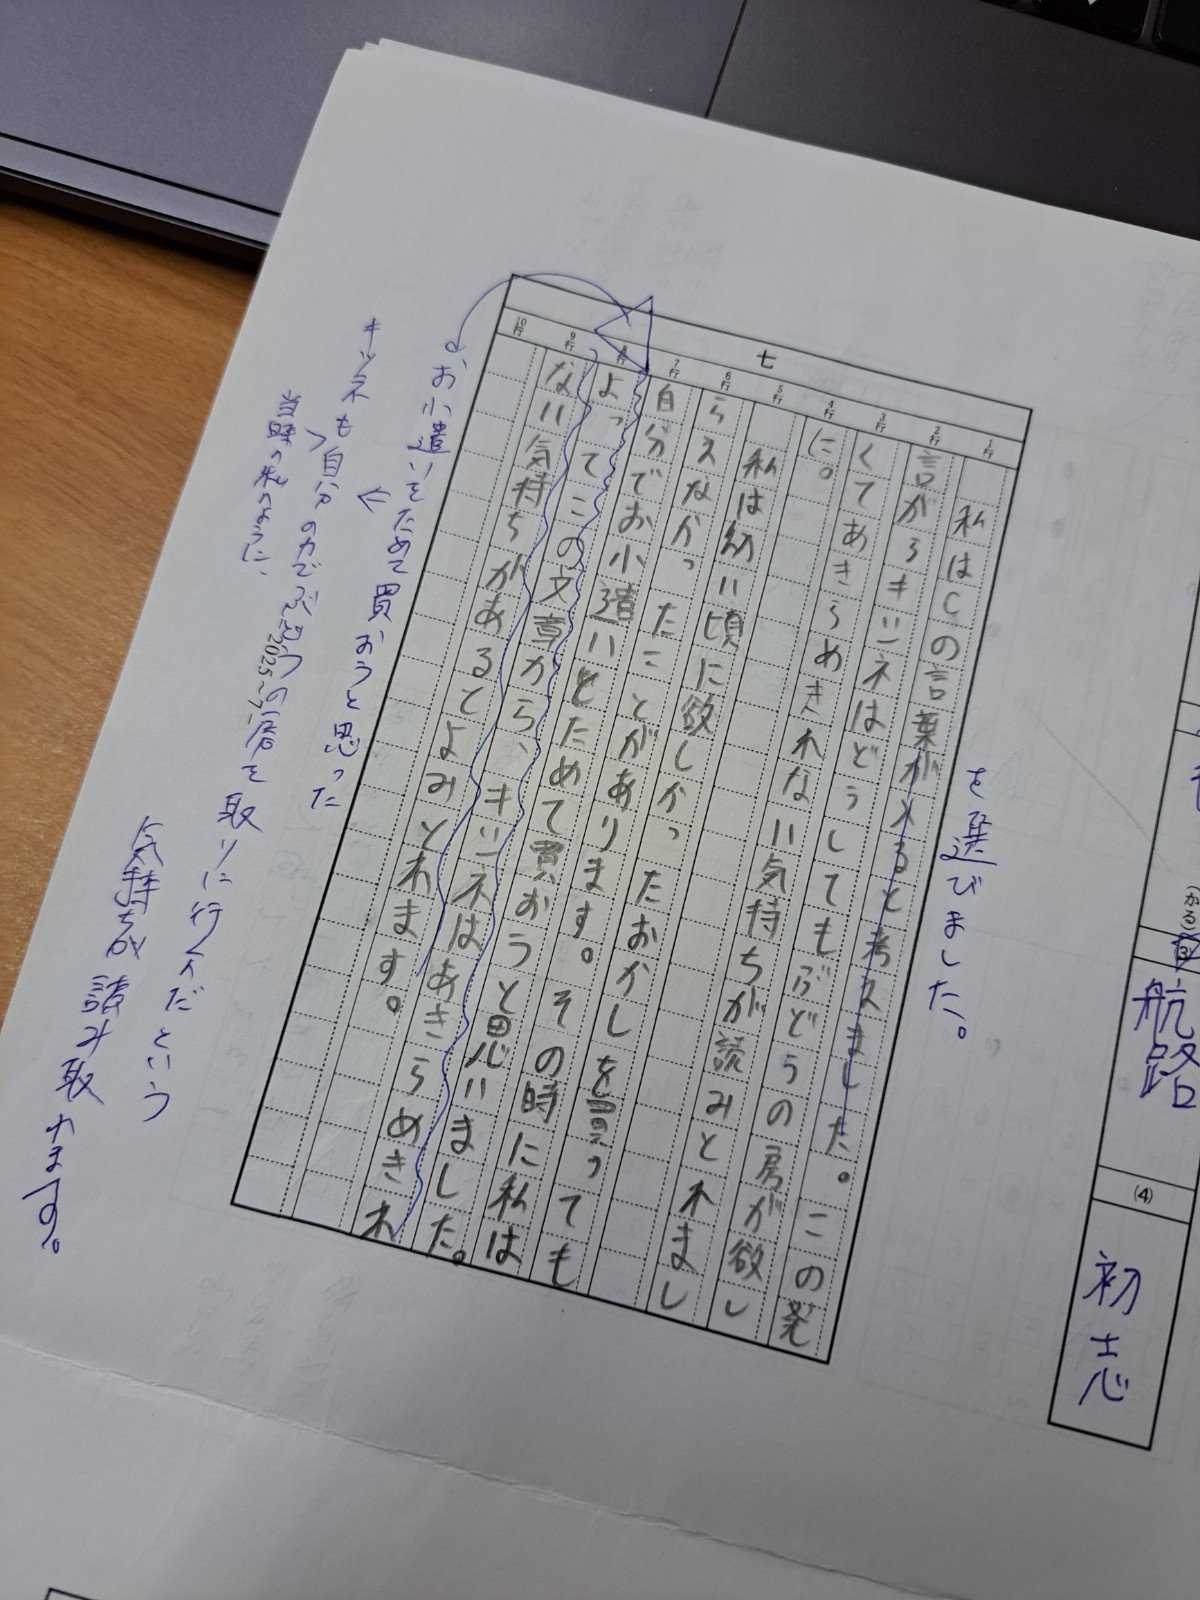 七
1行
2行
3行
4行
5行
6行
7行
8行
9行
10行
私はCの言葉が入ると考えました。この発
言がらキツネはどうしてもぶどうの房が欲し
くてあきらめきれない気持ちが読みとれまし
に。
私は幼い頃に欲しかったおかしを買っても
らえなかったことがあります。その時に私は
自分でお小遣いをためて買おうと思いました。
よってこの文章から、キツネはあきらめきれ
ない気持ちがあるてよみとれます。
を選びました。
お小遣いをためて買おうと思った
キツネも自分の力でぶどうの房を取りに行くんだという
当時の私のように、
気持ちが読み取れます。
2025~7.
航路
(4)
初志